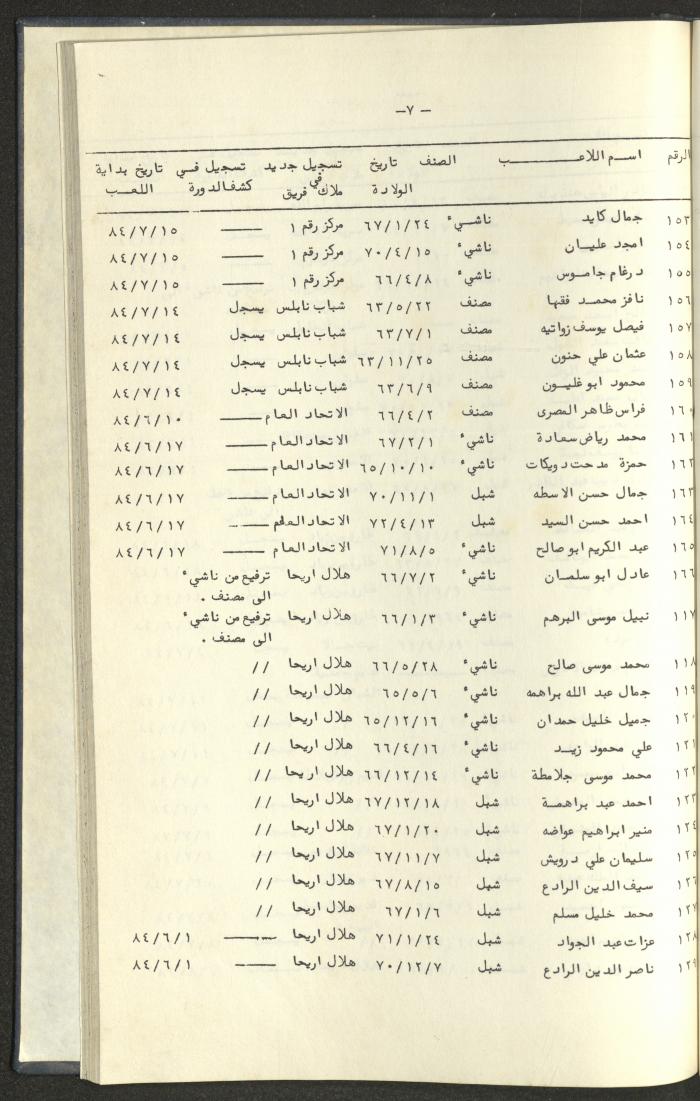 — ٧ —
الرقم اسم اللاعب الصنف تاريخ الولادة تسجيل جديد في ملاك فريق تسجيل في كشف الدورة تاريخ بداية اللعب
١٥٣ جمال كايد ناشيء ٦٧/١/٢٤ مركز رقم ١ —— ٨٤/٧/١٥
١٥٤ امجد عليان ناشيء ٧٠/٤/١٥ مركز رقم ١ —— ٨٤/٧/١٥
١٥٥ درغام جاموس ناشيء ٦٦/٤/٨ مركز رقم ١ —— ٨٤/٧/١٥
١٥٦ نافز محمد فقها مصنف ٦٣/٥/٢٢ شباب نابلس يسجل ٨٤/٧/١٤
١٥٧ فيصل يوسف زواتيه مصنف ٦٣/٧/١ شباب نابلس يسجل ٨٤/٧/١٤
١٥٨ عثمان علي حنون مصنف ٦٣/١١/٢٥ شباب نابلس يسجل ٨٤/٧/١٤
١٥٩ محمود ابو غليون مصنف ٦٣/٦/٩ شباب نابلس يسجل ٨٤/٧/١٤
١٦٠ فراس ظاهر المصرى مصنف ٦٦/٤/٢ الاتحاد العام —— ٨٤/٦/١٠
١٦١ محمد رياض سعادة ناشيء ٦٧/٢/١ الاتحاد العام —— ٨٤/٦/١٧
١٦٢ حمزة مدحت دويكات ناشيء ٦٥/١٠/١٠ الاتحاد العام —— ٨٤/٦/١٧
١٦٣ جمال حسن الاسطه شبل ٧٠/١١/١ الاتحاد العام —— ٨٤/٦/١٧
١٦٤ احمد حسن السيد شبل ٧٢/٤/١٣ الاتحاد العام —— ٨٤/٦/١٧
١٦٥ عبد الكريم ابو صالح ناشيء ٧١/٨/٥ الاتحاد العام —— ٨٤/٦/١٧
١٦٦ عادل ابو سلمان ناشيء ٦٦/٧/٢ هلال اريحا ترفيع من ناشيء
الى مصنف .
١١٧ نبيل موسى البرهم ناشيء ٦٦/١/٣ هلال اريحا ترفيع من ناشيء
الى مصنف .
١١٨ محمد موسى صالح ناشيء ٦٦/٥/٢٨ هلال اريحا //
١١٩ جمال عبد الله براهمه ناشيء ٦٥/٥/٦ هلال اريحا //
١٢٠ جميل خليل حمدان ناشيء ٦٥/١٢/١٦ هلال اريحا //
١٢١ علي محمود زيد ناشيء ٦٦/٤/١٦ هلال اريحا //
١٢٢ محمد موسى جلامطة ناشيء ٦٦/١٢/١٤ هلال اريحا //
١٢٣ احمد عبد براهمة شبل ٦٧/١٢/١٨ هلال اريحا //
١٢٤ منير ابراهيم عواضه شبل ٦٧/١/٢٠ هلال اريحا //
١٢٥ سليمان علي درويش شبل ٦٧/١١/٧ هلال اريحا //
١٢٦ سيف الدين الرادع شبل ٦٧/٨/١٥ هلال اريحا //
١٢٧ محمد خليل مسلم شبل ٦٧/١/٦ هلال اريحا //
١٢٨ عزات عبد الجواد شبل ٧١/١/٢٤ هلال اريحا —— ٨٤/٦/١
١٢٩ ناصر الدين الرادع شبل ٧٠/١٢/٧ هلال اريحا —— ٨٤/٦/١